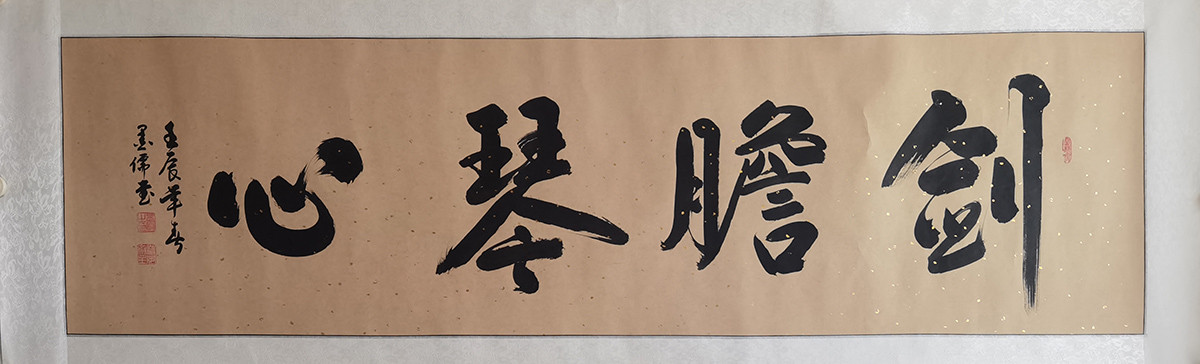 剑膽琴心
壬辰年春
墨儒書